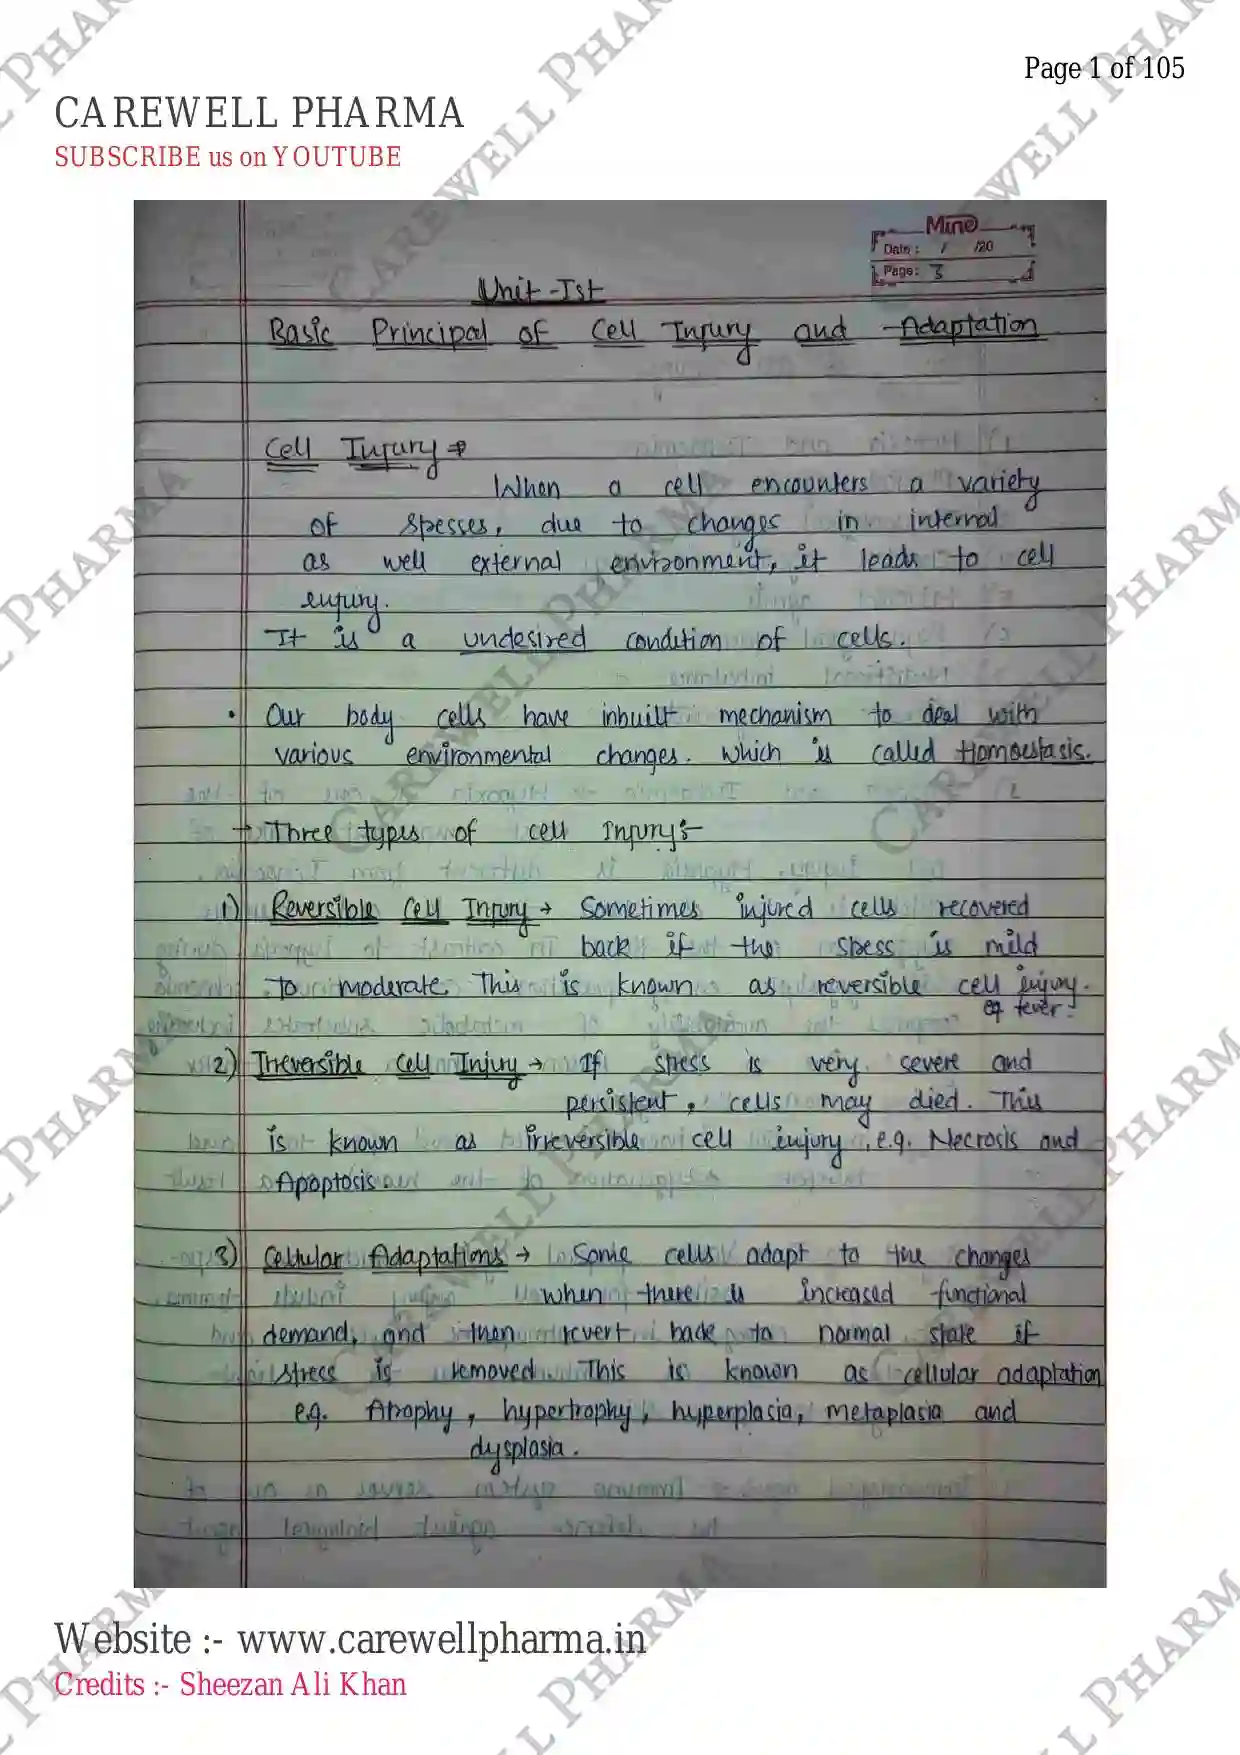 Page 1 of 105
CAREWELL PHARMA
SUBSCRIBE us on YOUTUBE
Mino
Date : / /20
Page: 3
Unit - Ist
Basic Principal of Cell Injury and Adaptation
Cell Injury →
When a cell encounters a variety
of stresses, due to changes in internal
as well external environment, it leads to cell
injury.
It is a undesired condition of cells.
• Our body cells have inbuilt mechanism to deal with
various environmental changes. Which is called Homoestasis.
→ Three types of cell Injury :-
1) Reversible Cell Injury → Sometimes injured cells recovered
back if the stress is mild
to moderate. This is known as reversible cell injury.
eg fever.
2) Irreversible Cell Injury → If stress is very severe and
persistent, cells may died. This
is known as irreversible cell injury. e.g. Necrosis and
Apoptosis.
3) Cellular Adaptations → Some cells adapt to the changes
when there is increased functional
demand, and then revert back to normal state if
stress is removed. This is known as cellular adaptation
e.g. Atrophy, hypertrophy, hyperplasia, metaplasia and
dysplasia.
Website :- www.carewellpharma.in
Credits :- Sheezan Ali Khan